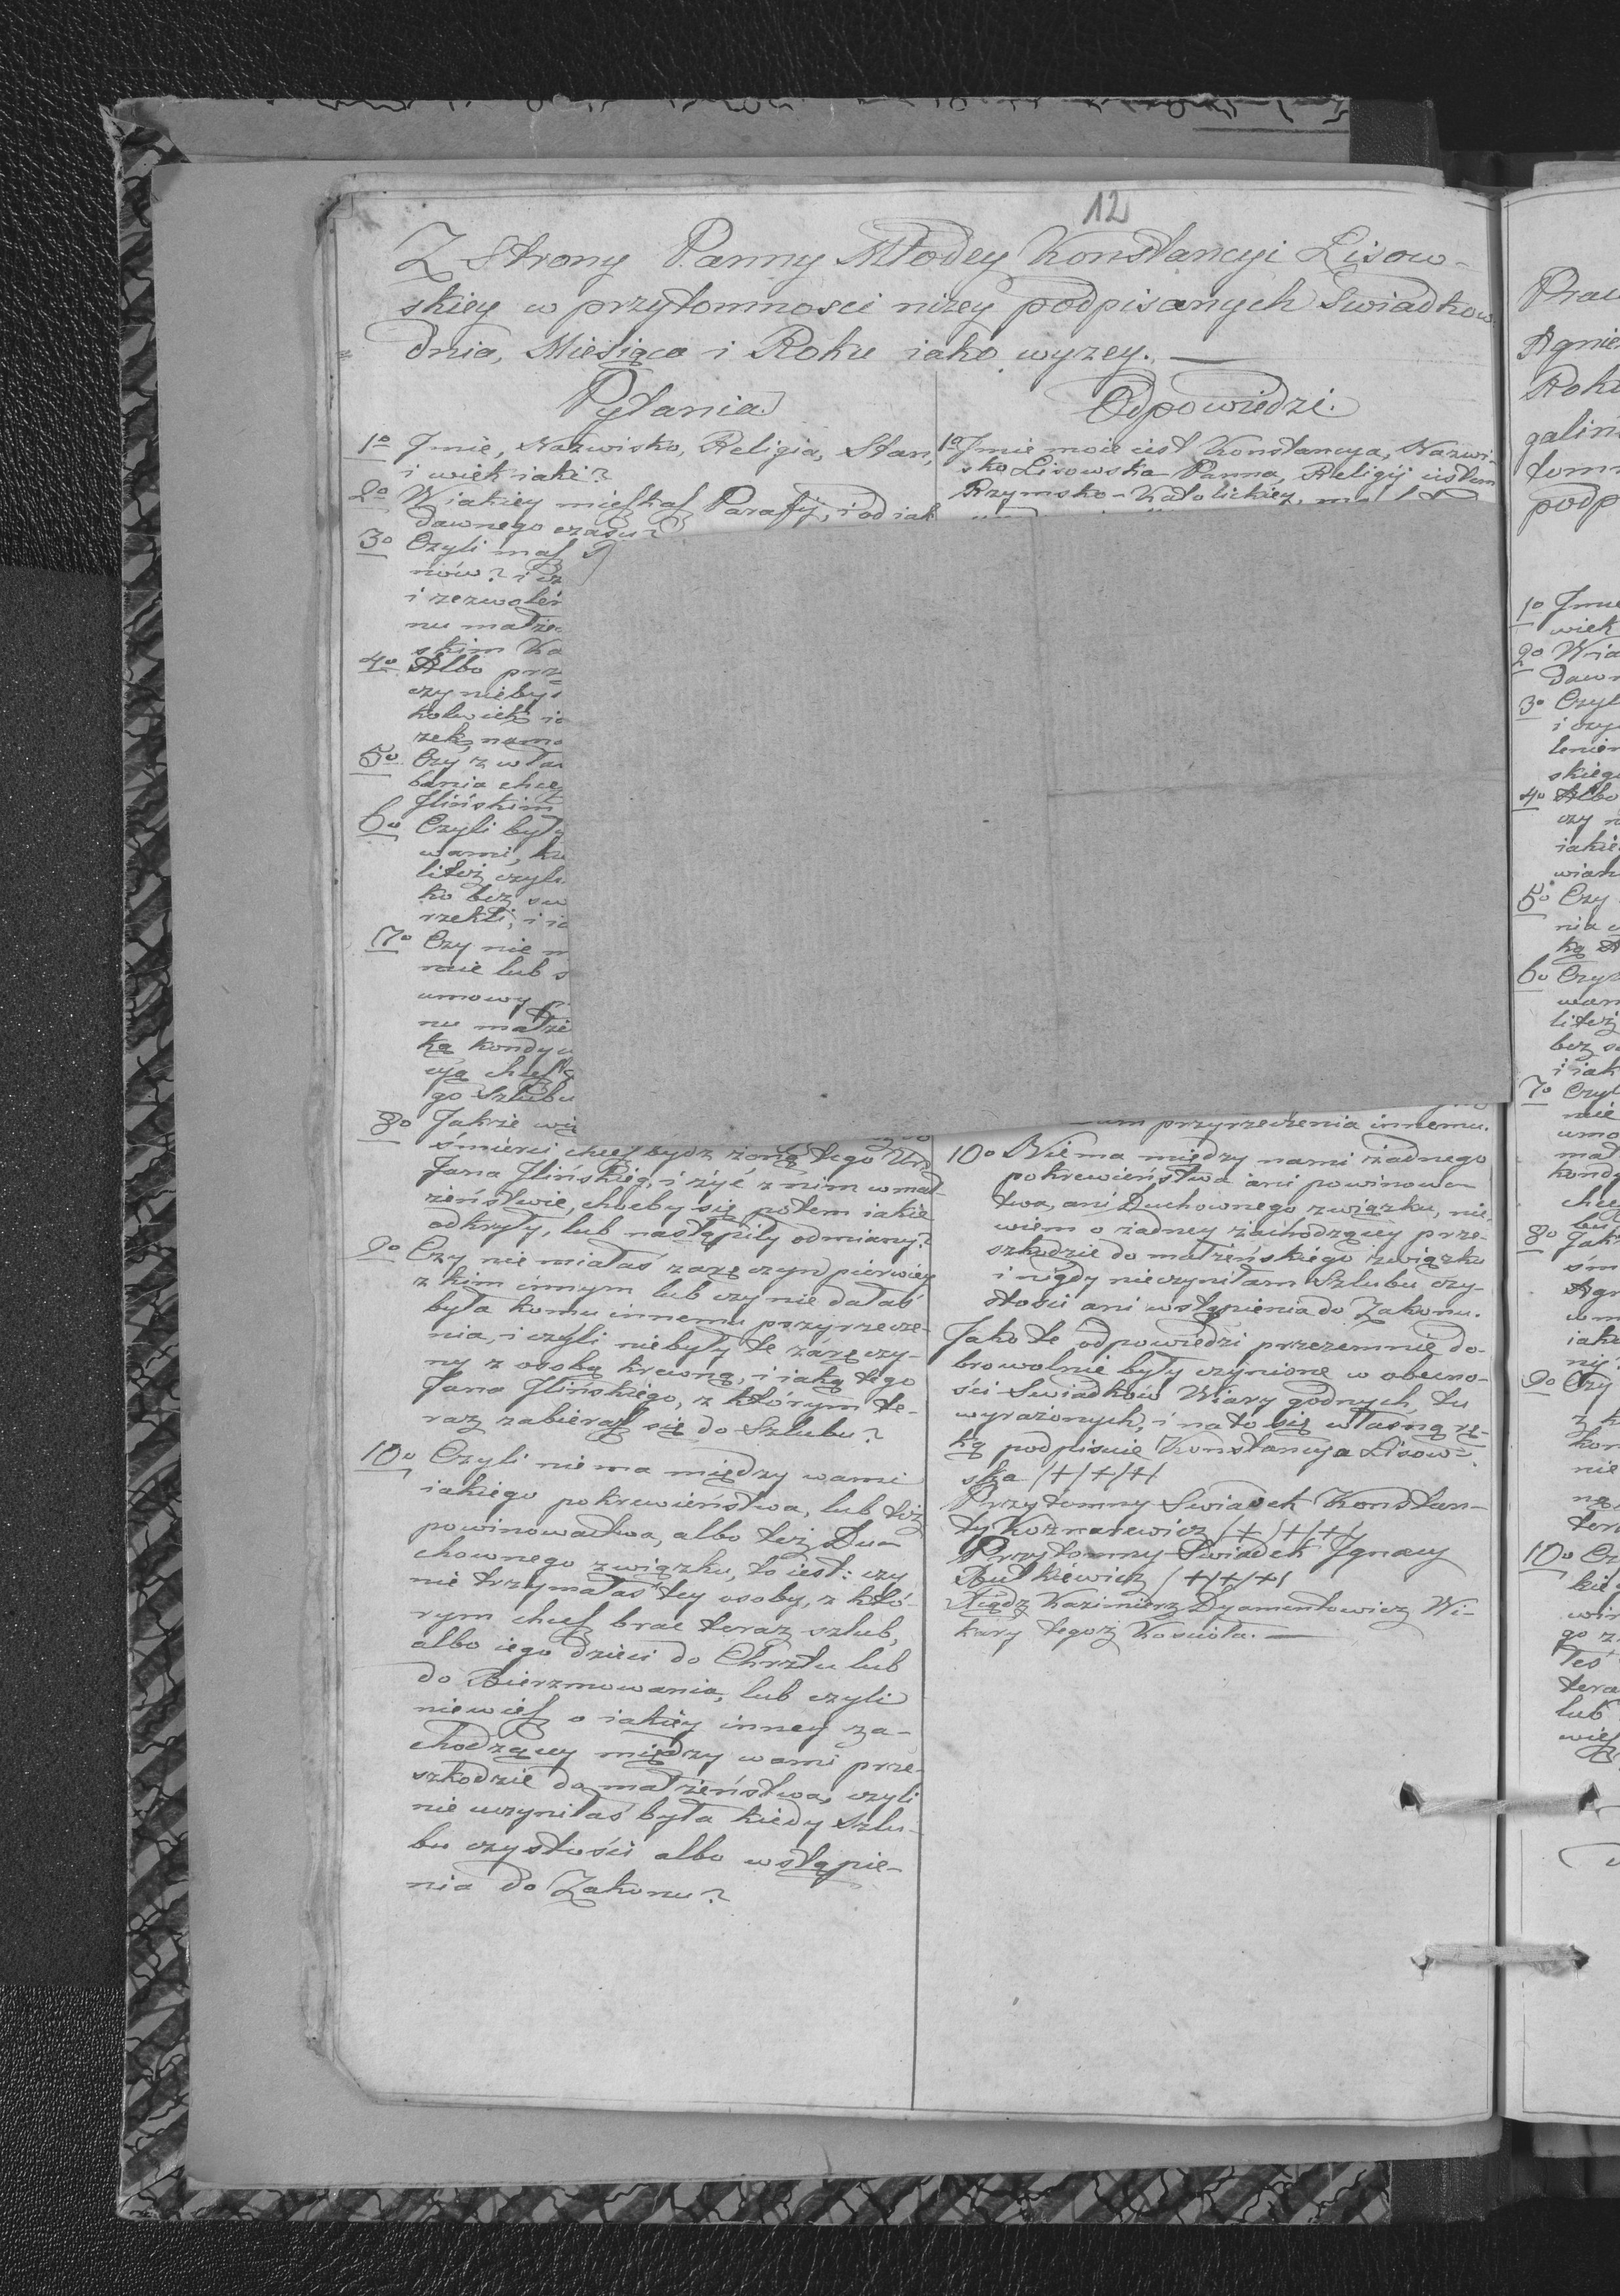 12
Z Strony Panny Młodey Konstancyi Lisow-
skiey w przytomnosci nizey podpisanych Swiadkow
dnia, Miesiąca i Roku iako wyzey.
Pytania.
1o Jmie, Nazwisko, Religia, Stan,
i wiek iaki?
2o W iakiey mieszkasz Parafij, i od iak
dawnego czasu?
3o Czyli masz
nów? i cz
i zezwoleń
nu małże
skim Ka
4o Albo prz
czy nieby
kolwiek ia
rzek, namo
5o Czy z wła
bania chcesz
Jlińskim
6o Czyli był
wami, kr
litéż czyli
ko bez sw
rzekli, i ia
7o Czy nie m
mie lub s
umowy p
nu małże
ką kondyc
cyą chcesz
go Szlubu
8o Jakże wi
śmierci chcesz bydz żoną tego Ur.
Jana Jlińskieg, i żyć z nim w mał-
żeństwie, choćby się potem iakie
odkryły, lub nastąpiły odmiany?
9o Czy nie miałaś zaręczyn pierwiey
z kim innym lub czy nie dałaś
była komu innemu przyrzecze-
nia, i czyli niebyły te zaręczy-
ny z osobą krewną, i iaką tego
Jana Jlińskiego, z którym te-
raz zabierasz się do Szlubu?
10o Czyli niema między wami
iakiego pokrewieństwa, lub téż
powinowactwa, albo też Du-
chownego związku, to iest: czy
nie trzymałaś tey osoby, z któ-
rym chcesz brac teraz szlub,
albo iego dzieci do Chrztu lub
do Bierzmowania, lub czyli
niewiesz o iakiéy inney za-
chodzącey między wami prze-
szkodzie do małżeństwa, czyli
nie uczyniłaś była kiedy Szlu-
bu czystości albo wstąpie-
nia do Zakonu?
Odpowiedzi.
1o Jmie moie iest Konstancya, Nazwi-
sko Lisowska Panna, Religij iestem
Rzymsko-Katolickiey,
przyrzeczenia innemu.
10o Niema między nami żadnego
pokrewieństwa ani powinowa-
twa, ani Duchownego związku, nie-
wiem o żadney zachodzącey prze-
szkodzie do małżeńskiego związku
i nigdy nieczyniłam Szlubu czy-
stości ani wstąpienia do Zakonu.
Jako te odpowiedzi przezemnie do-
browolnie były czynione w obecno-
ści Swiadków Wiary godnych, tu
wyrażonych, i na to się własną rę-
ką podpisuię Konstancya Lisow-
ska /+/+/+/
Przytomny Swiadek Konstan-
ty Koznarewicz /+/+/+/
Przytomny Swiadek Jgnacy
Butkiewicz /+/+/+/
Xiądz Kazimierz Dyamentowicz Wi-
kary tegoż Kosciola.
Agnie
Roku
galin
podp
1o Jmie
wiek
2o W ia
dawn
3o Czyl
i czy
lenien
skieg
4o Albo
czy n
iakie
wian
5o Czy
nia
ką A
6o Czyl
wam
litéż
bez s
i iak
7o Czyl
mie
umo
mał
kondy
chce
8o Jak
śm
Agn
w m
iaki
9o Czy
z k
kom
nie
10o Cz
kie
win
go z
teras
lub
wies